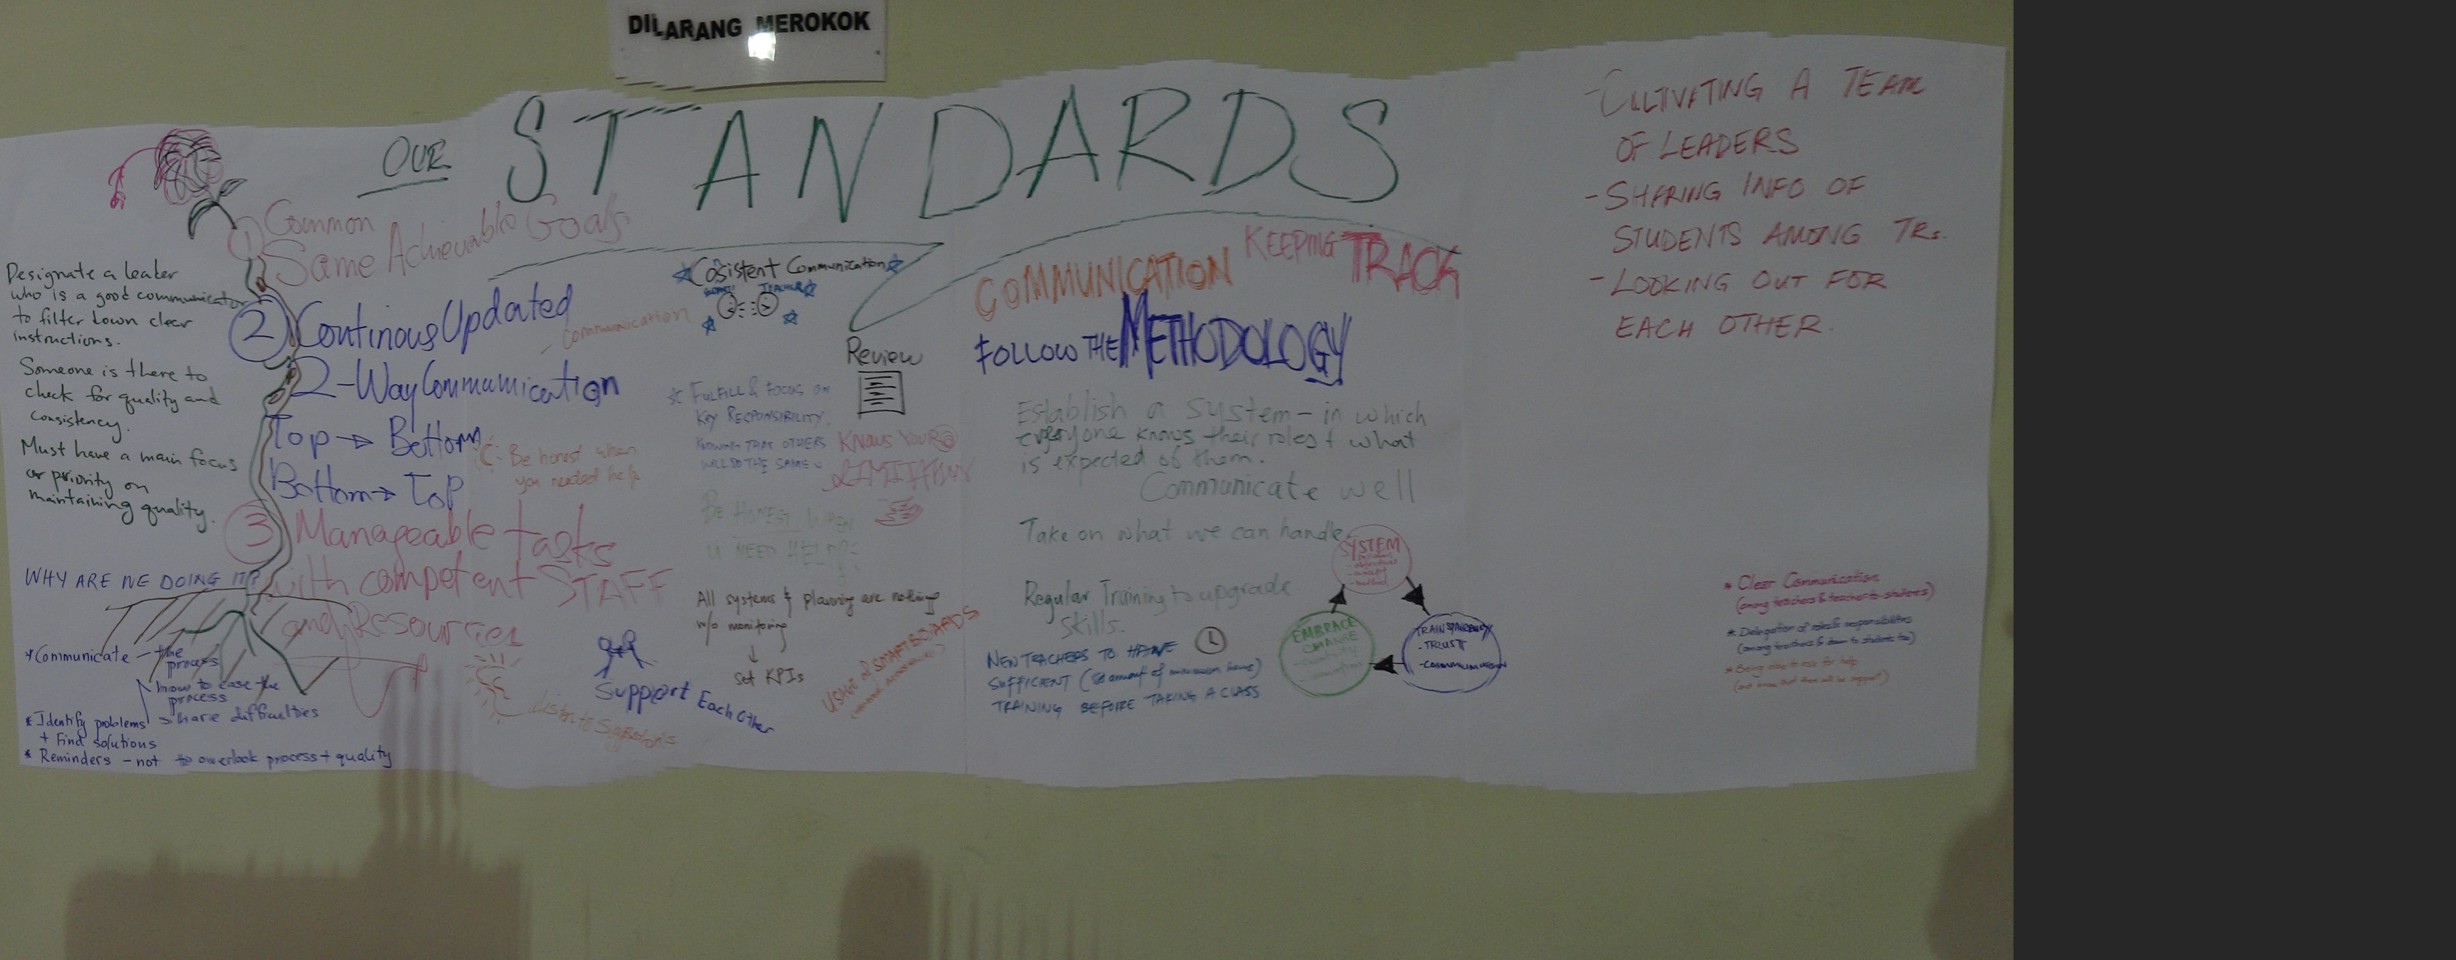 DILARANG MEROKOK
OUR STANDARDS
① Common
Same Achievable Goals
Designate a leader
who is a good communicator
to filter down clear
instructions.
Someone is there to
check for quality and
consistency.
Must have a main focus
or priority on
maintaining quality.
② Continous Updated
- Communication
2-Way Communication
Top → Bottom
Bottom → Top
Be honest when
you needed help
③ Manageable tasks
with competent STAFF
and Resources
WHY ARE WE DOING IT?
* Communicate - the
process
how to ease the
process
share difficulties
* Identify problems
+ Find solutions
* Reminders - not to overlook process + quality
Cosistent Communication
Review
* FULFILL & FOCUS ON
KEY RESPONSIBILITY.
KNOWING THAT OTHERS
WILL DO THE SAME
KNOW YOUR
LIMITATION
BE HONEST WHEN
U NEED HELP
All systems & planning are nothing
w/o monitoring
↓
set KPIs
Support Each Other
USAGE of SMARTBOARDS
COMMUNICATION
KEEPING TRACK
FOLLOW THE METHODOLOGY
Establish a system - in which
everyone knows their roles & what
is expected of them.
Communicate well
Take on what we can handle
Regular Training to upgrade
skills.
NEW TEACHERS TO HAVE
SUFFICIENT
TRAINING BEFORE TAKING A CLASS
SYSTEM
TRANSPARENCY
- TRUST
- COMMUNICATION
EMBRACE
CHANGE
- CULTIVATING A TEAM
OF LEADERS
- SHARING INFO OF
STUDENTS AMONG TRs.
- LOOKING OUT FOR
EACH OTHER.
* Clear Communication
(among teachers & teacher to students)
* Delegation of roles & responsibilities
(among teachers & down to students too)
* Being able to ask for help